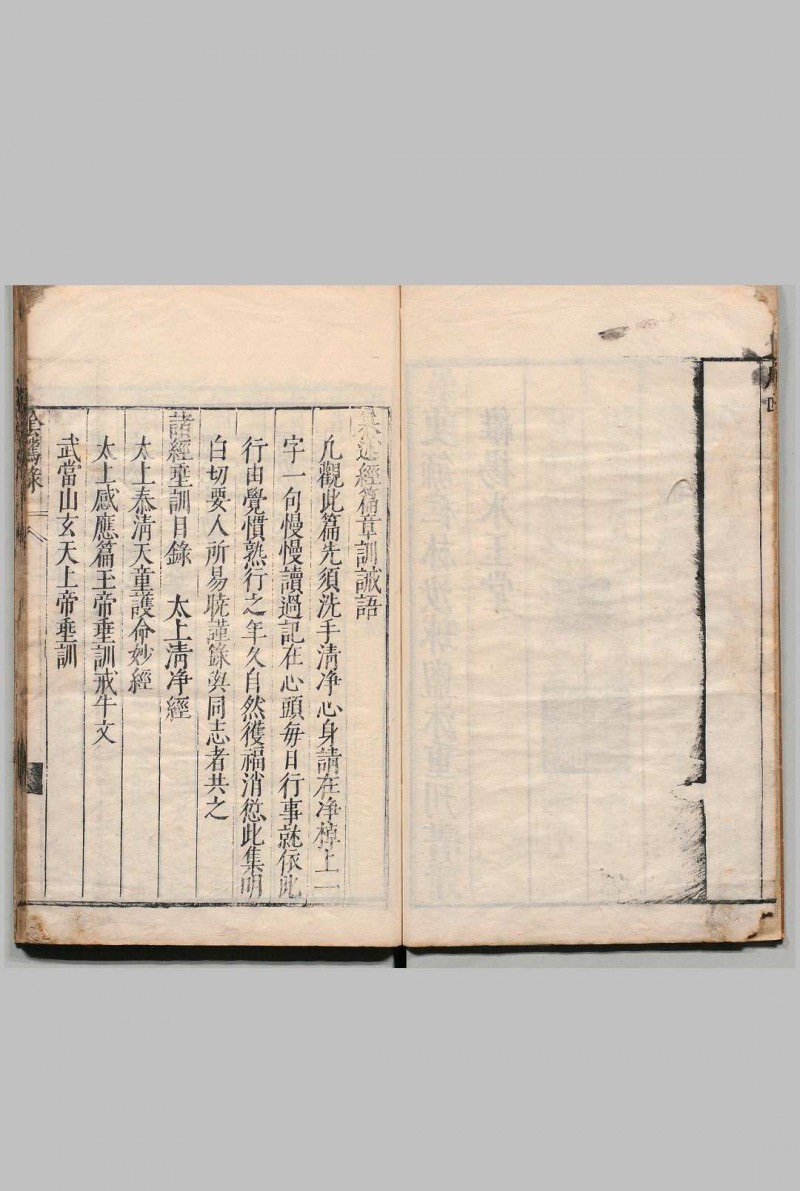 述經篇章訓誡語
凡觀此篇先須洗手清净心身請在净棹上一
字一句慢慢讀過記在心頭每日行事就依此
行由覺慣熟行之年久自然獲福消愆此集明
白切要人所易曉謹錄與同志者共之
諸經垂訓目錄　太上清净經
太上泰清天童護命妙經
太上感應篇玉帝垂訓戒牛文
武當山玄天上帝垂訓
陰騭錄